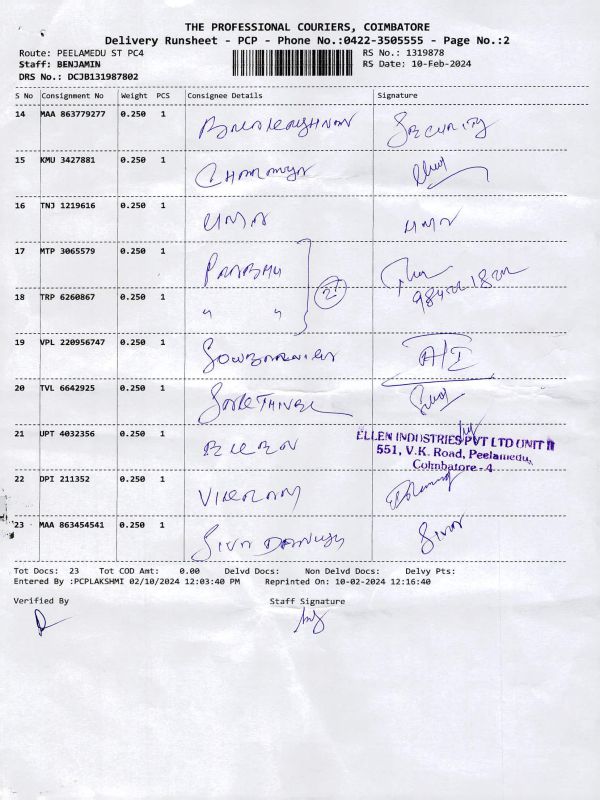 THE PROFESSIONAL COURIERS, COIMBATORE
Delivery Runsheet - PCP - Phone No.:0422-3505555 - Page No.:2
Route: PEELAMEDU ST PC4 RS No.: 1319878
Staff: BENJAMIN RS Date: 10-Feb-2024
DRS No.: DCJB131987802
S No Consignment No Weight PCS Consignee Details Signature
14 MAA 863779277 0.250 1 BALAKRISHNAN SECURITY
15 KMU 3427881 0.250 1
16 TNJ 1219616 0.250 1 UMA UMA
17 MTP 3065579 0.250 1 PRABHU
18 TRP 6260867 0.250 1 " "
19 VPL 220956747 0.250 1 A/I
20 TVL 6642925 0.250 1
21 UPT 4032356 0.250 1
ELLEN INDUSTRIES PVT LTD UNIT II
551, V.K. Road, Peelamedu,
Coimbatore - 4
22 DPI 211352 0.250 1 VIKRAM
23 MAA 863454541 0.250 1 SIVA
Tot Docs: 23 Tot COD Amt: 0.00 Delvd Docs: Non Delvd Docs: Delvy Pts:
Entered By :PCPLAKSHMI 02/10/2024 12:03:40 PM Reprinted On: 10-02-2024 12:16:40
Verified By Staff Signature